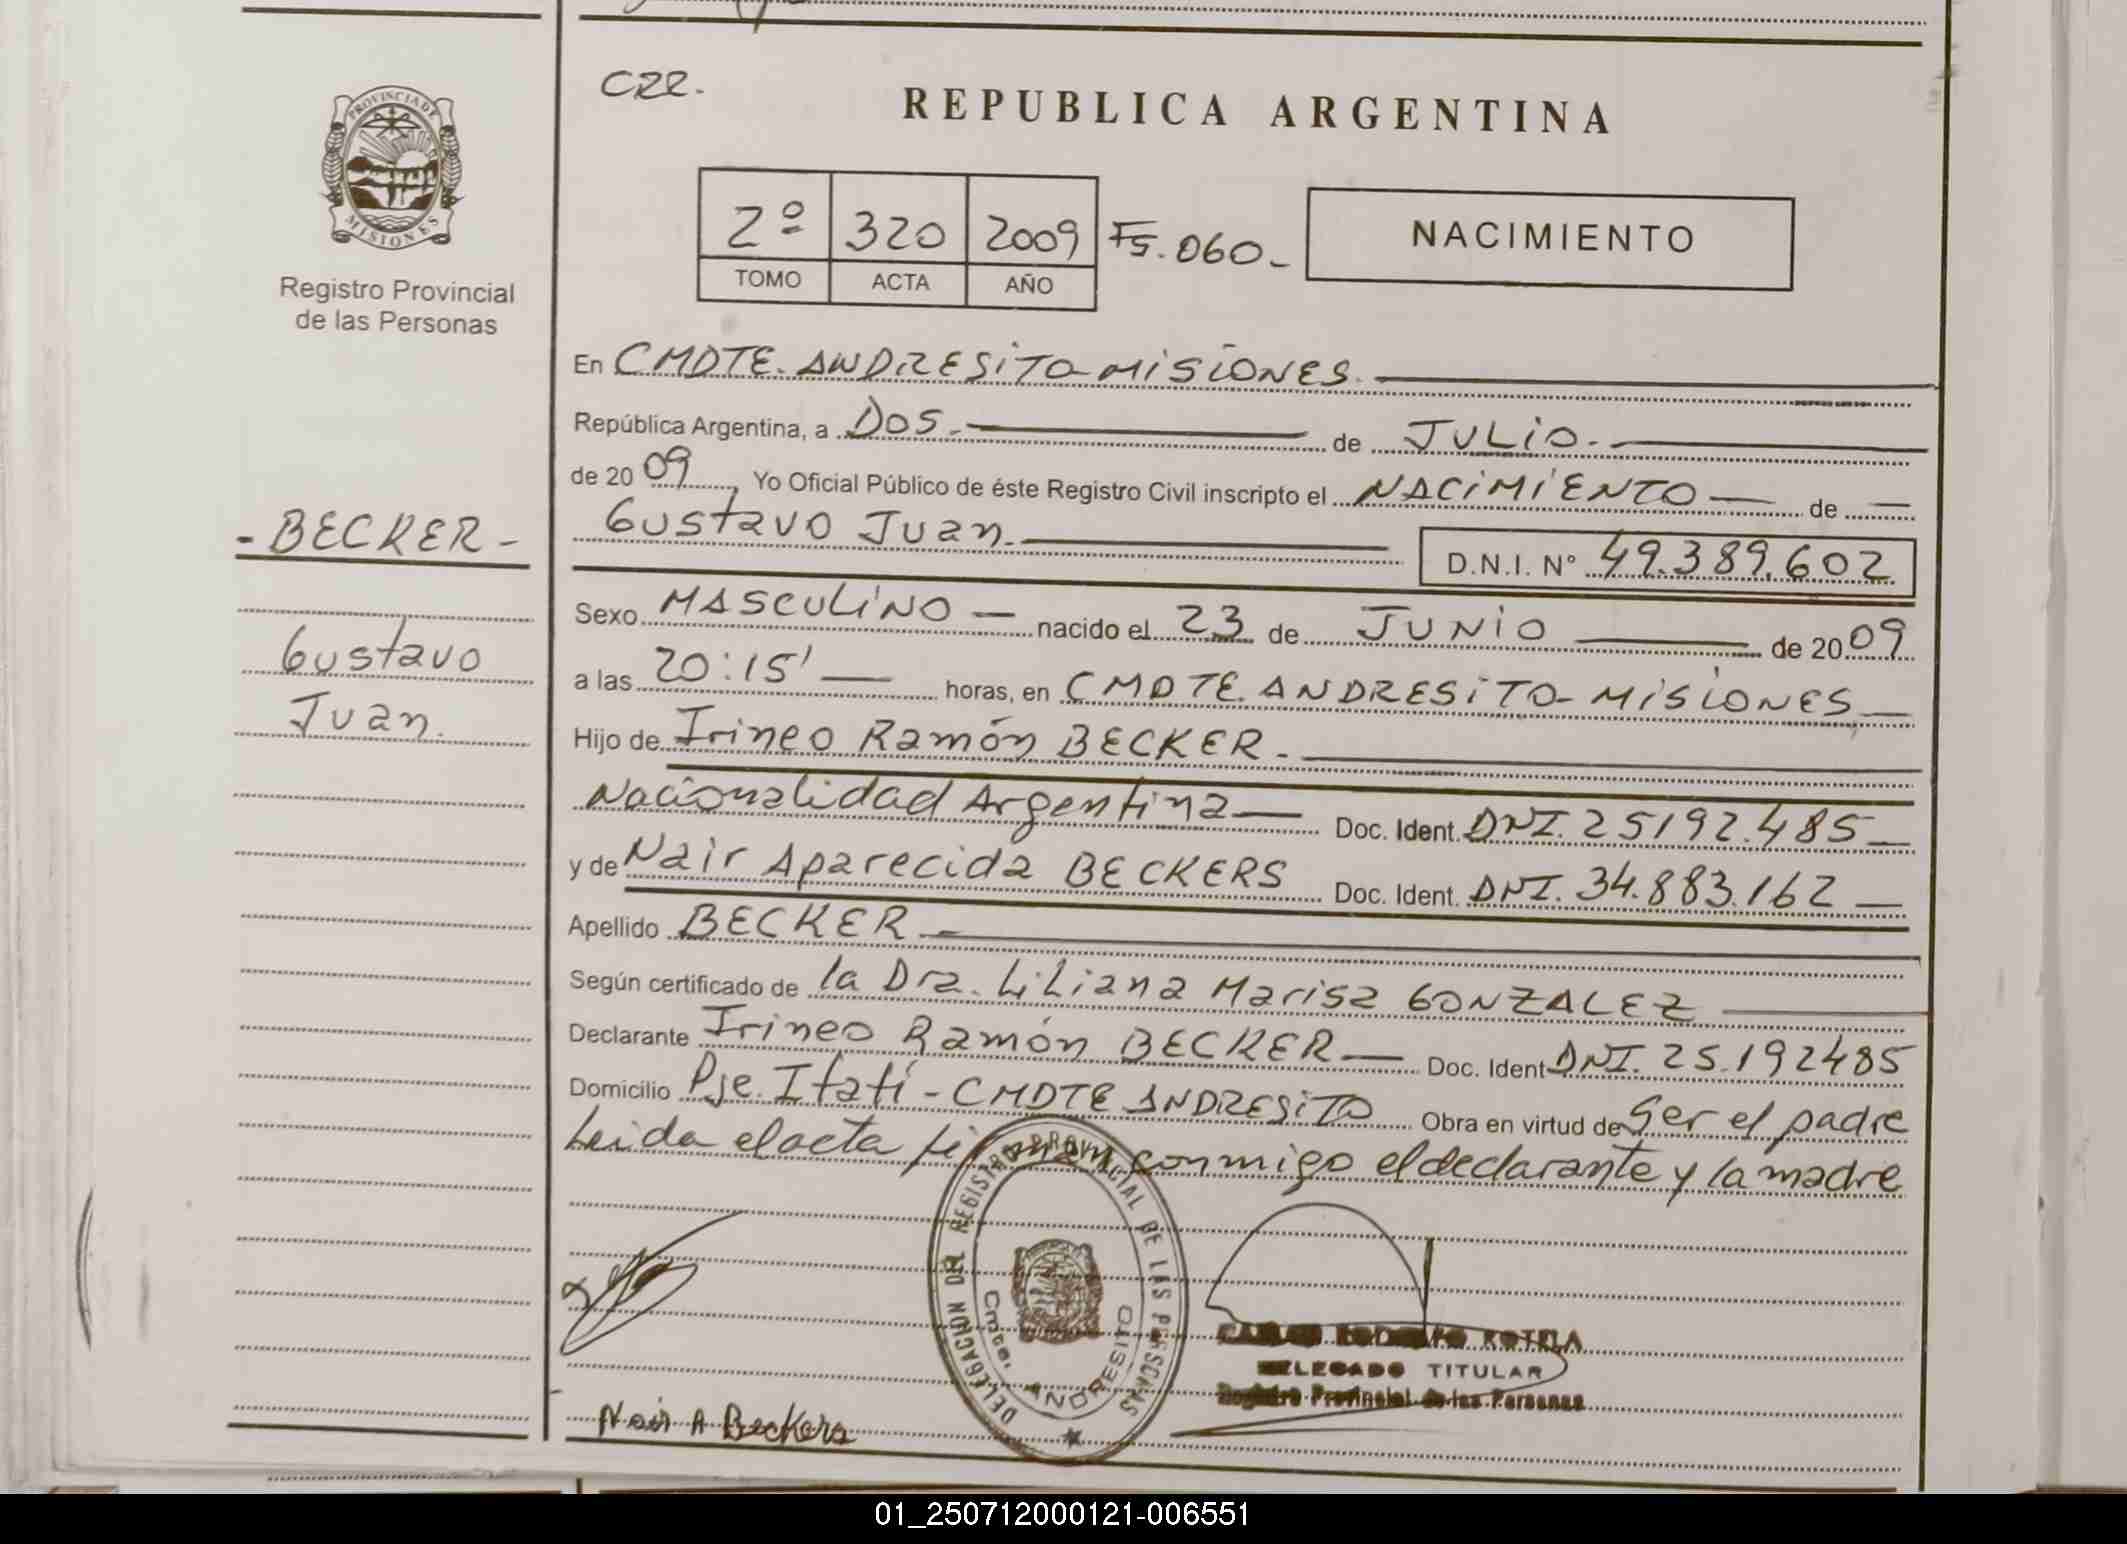 CZZ.
REPUBLICA ARGENTINA
PROVINCIA DE
MISIONES
Registro Provincial
de las Personas
2º 320 2009 Fs. 060.-
TOMO ACTA AÑO
NACIMIENTO
En CMDTE. ANDRESITO-MISIONES.
República Argentina, a DOS.- de JULIO.-
de 2009, Yo Oficial Público de éste Registro Civil inscripto el NACIMIENTO de
Gustavo Juan.
D.N.I. Nº 49.389.602
- BECKER -
Gustavo
Juan.
Sexo MASCULINO nacido el 23 de JUNIO de 2009
a las 20:15' horas, en CMDTE. ANDRESITO-MISIONES
Hijo de Irineo Ramón BECKER.
Nacionalidad Argentina Doc. Ident. DNI. 25192.485
y de Nair Aparecida BECKERS Doc. Ident. DNI. 34.883.162
Apellido BECKER
Según certificado de la Dra. Liliana Marisa GONZALEZ
Declarante Irineo Ramón BECKER Doc. Ident DNI. 25.192485
Domicilio Pje. Itatí - CMDTE ANDRESITO Obra en virtud de Ser el padre
Leida el acta firman conmigo el declarante y la madre
DELEGACION DEL REGISTRO PROVINCIAL DE LAS PERSONAS
Cmte. ANDRESITO
KOTELA
DELEGADO TITULAR
Registro Provincial de las Personas
Nair A Beckers
01_250712000121-006551